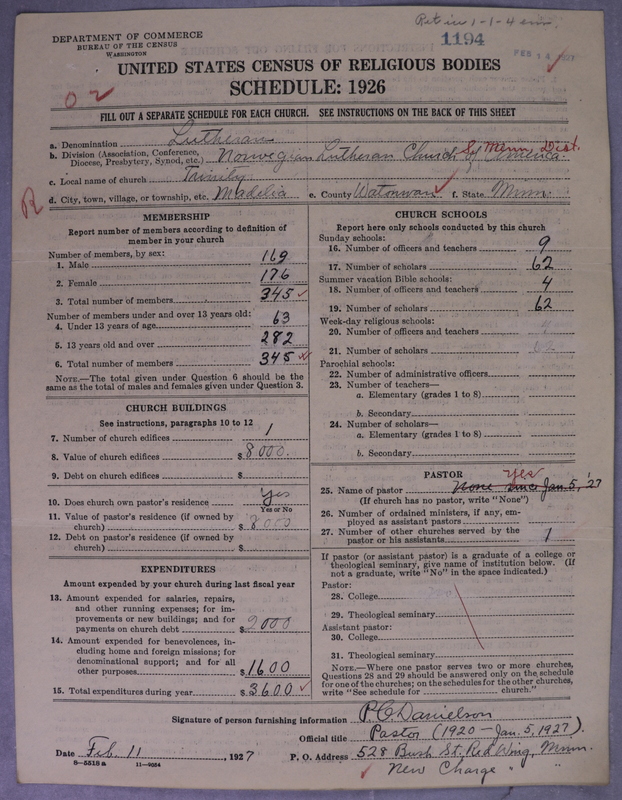 Ret in 1-1-4
DEPARTMENT OF COMMERCE
BUREAU OF THE CENSUS
WASHINGTON
1194
FEB 14 1927
UNITED STATES CENSUS OF RELIGIOUS BODIES
SCHEDULE: 1926
FILL OUT A SEPARATE SCHEDULE FOR EACH CHURCH. SEE INSTRUCTIONS ON THE BACK OF THIS SHEET
a. Denomination Lutheran
b. Division (Association, Conference, Diocese, Presbytery, Synod, etc.) Norwegian Lutheran Church of America. S. Minn. Dist.
c. Local name of church Trinity
R
d. City, town, village, or township, etc. Madelia e. County Watonwan f. State Minn.
MEMBERSHIP
Report number of members according to definition of
member in your church
Number of members, by sex:
1. Male 169
2. Female 176
3. Total number of members 345
Number of members under and over 13 years old:
4. Under 13 years of age 63
5. 13 years old and over 282
6. Total number of members 345
NOTE.—The total given under Question 6 should be
same as the total of males and females given under Question 3.
CHURCH BUILDINGS
See instructions, paragraphs 10 to 12
7. Number of church edifices 1
8. Value of church edifices $8000.
9. Debt on church edifices $
10. Does church own pastor's residence Yes
Yes or No
11. Value of pastor's residence (if owned by
church) $8000
12. Debt on pastor's residence (if owned by
church) $
EXPENDITURES
Amount expended by your church during last fiscal year
13. Amount expended for salaries, repairs,
and other running expenses; for im-
provements or new buildings; and for
payments on church debt $2000
14. Amount expended for benevolences, in-
cluding home and foreign missions; for
denominational support; and for all
other purposes $1600
15. Total expenditures during year $3600
CHURCH SCHOOLS
Report here only schools conducted by this church
Sunday schools:
16. Number of officers and teachers 9
17. Number of scholars 62
Summer vacation Bible schools:
18. Number of officers and teachers 4
19. Number of scholars 62
Week-day religious schools:
20. Number of officers and teachers 4
21. Number of scholars 62
Parochial schools:
22. Number of administrative officers
23. Number of teachers—
a. Elementary (grades 1 to 8)
b. Secondary
24. Number of scholars—
a. Elementary (grades 1 to 8)
b. Secondary
PASTOR
Yes
25. Name of pastor None since Jan. 5, '27
(If church has no pastor, write "None")
26. Number of ordained ministers, if any, em-
ployed as assistant pastors
27. Number of other churches served by the
pastor or his assistants 1
If pastor (or assistant pastor) is a graduate of a college or
theological seminary, give name of institution below. (If
not a graduate, write "No" in the space indicated.)
Pastor:
28. College
29. Theological seminary
Assistant pastor:
30. College
31. Theological seminary
NOTE.—Where one pastor serves two or more churches,
Questions 28 and 29 should be answered only on the schedule
for one of the churches; on the schedules for the other churches,
write "See schedule for church."
Signature of person furnishing information P.C. Danielson
Official title Pastor (1920 - Jan. 5, 1927).
Date Feb. 11, 1927 P. O. Address 528 Bush St. Red Wing, Minn.
8-5518 a 11-9664
New Charge " "